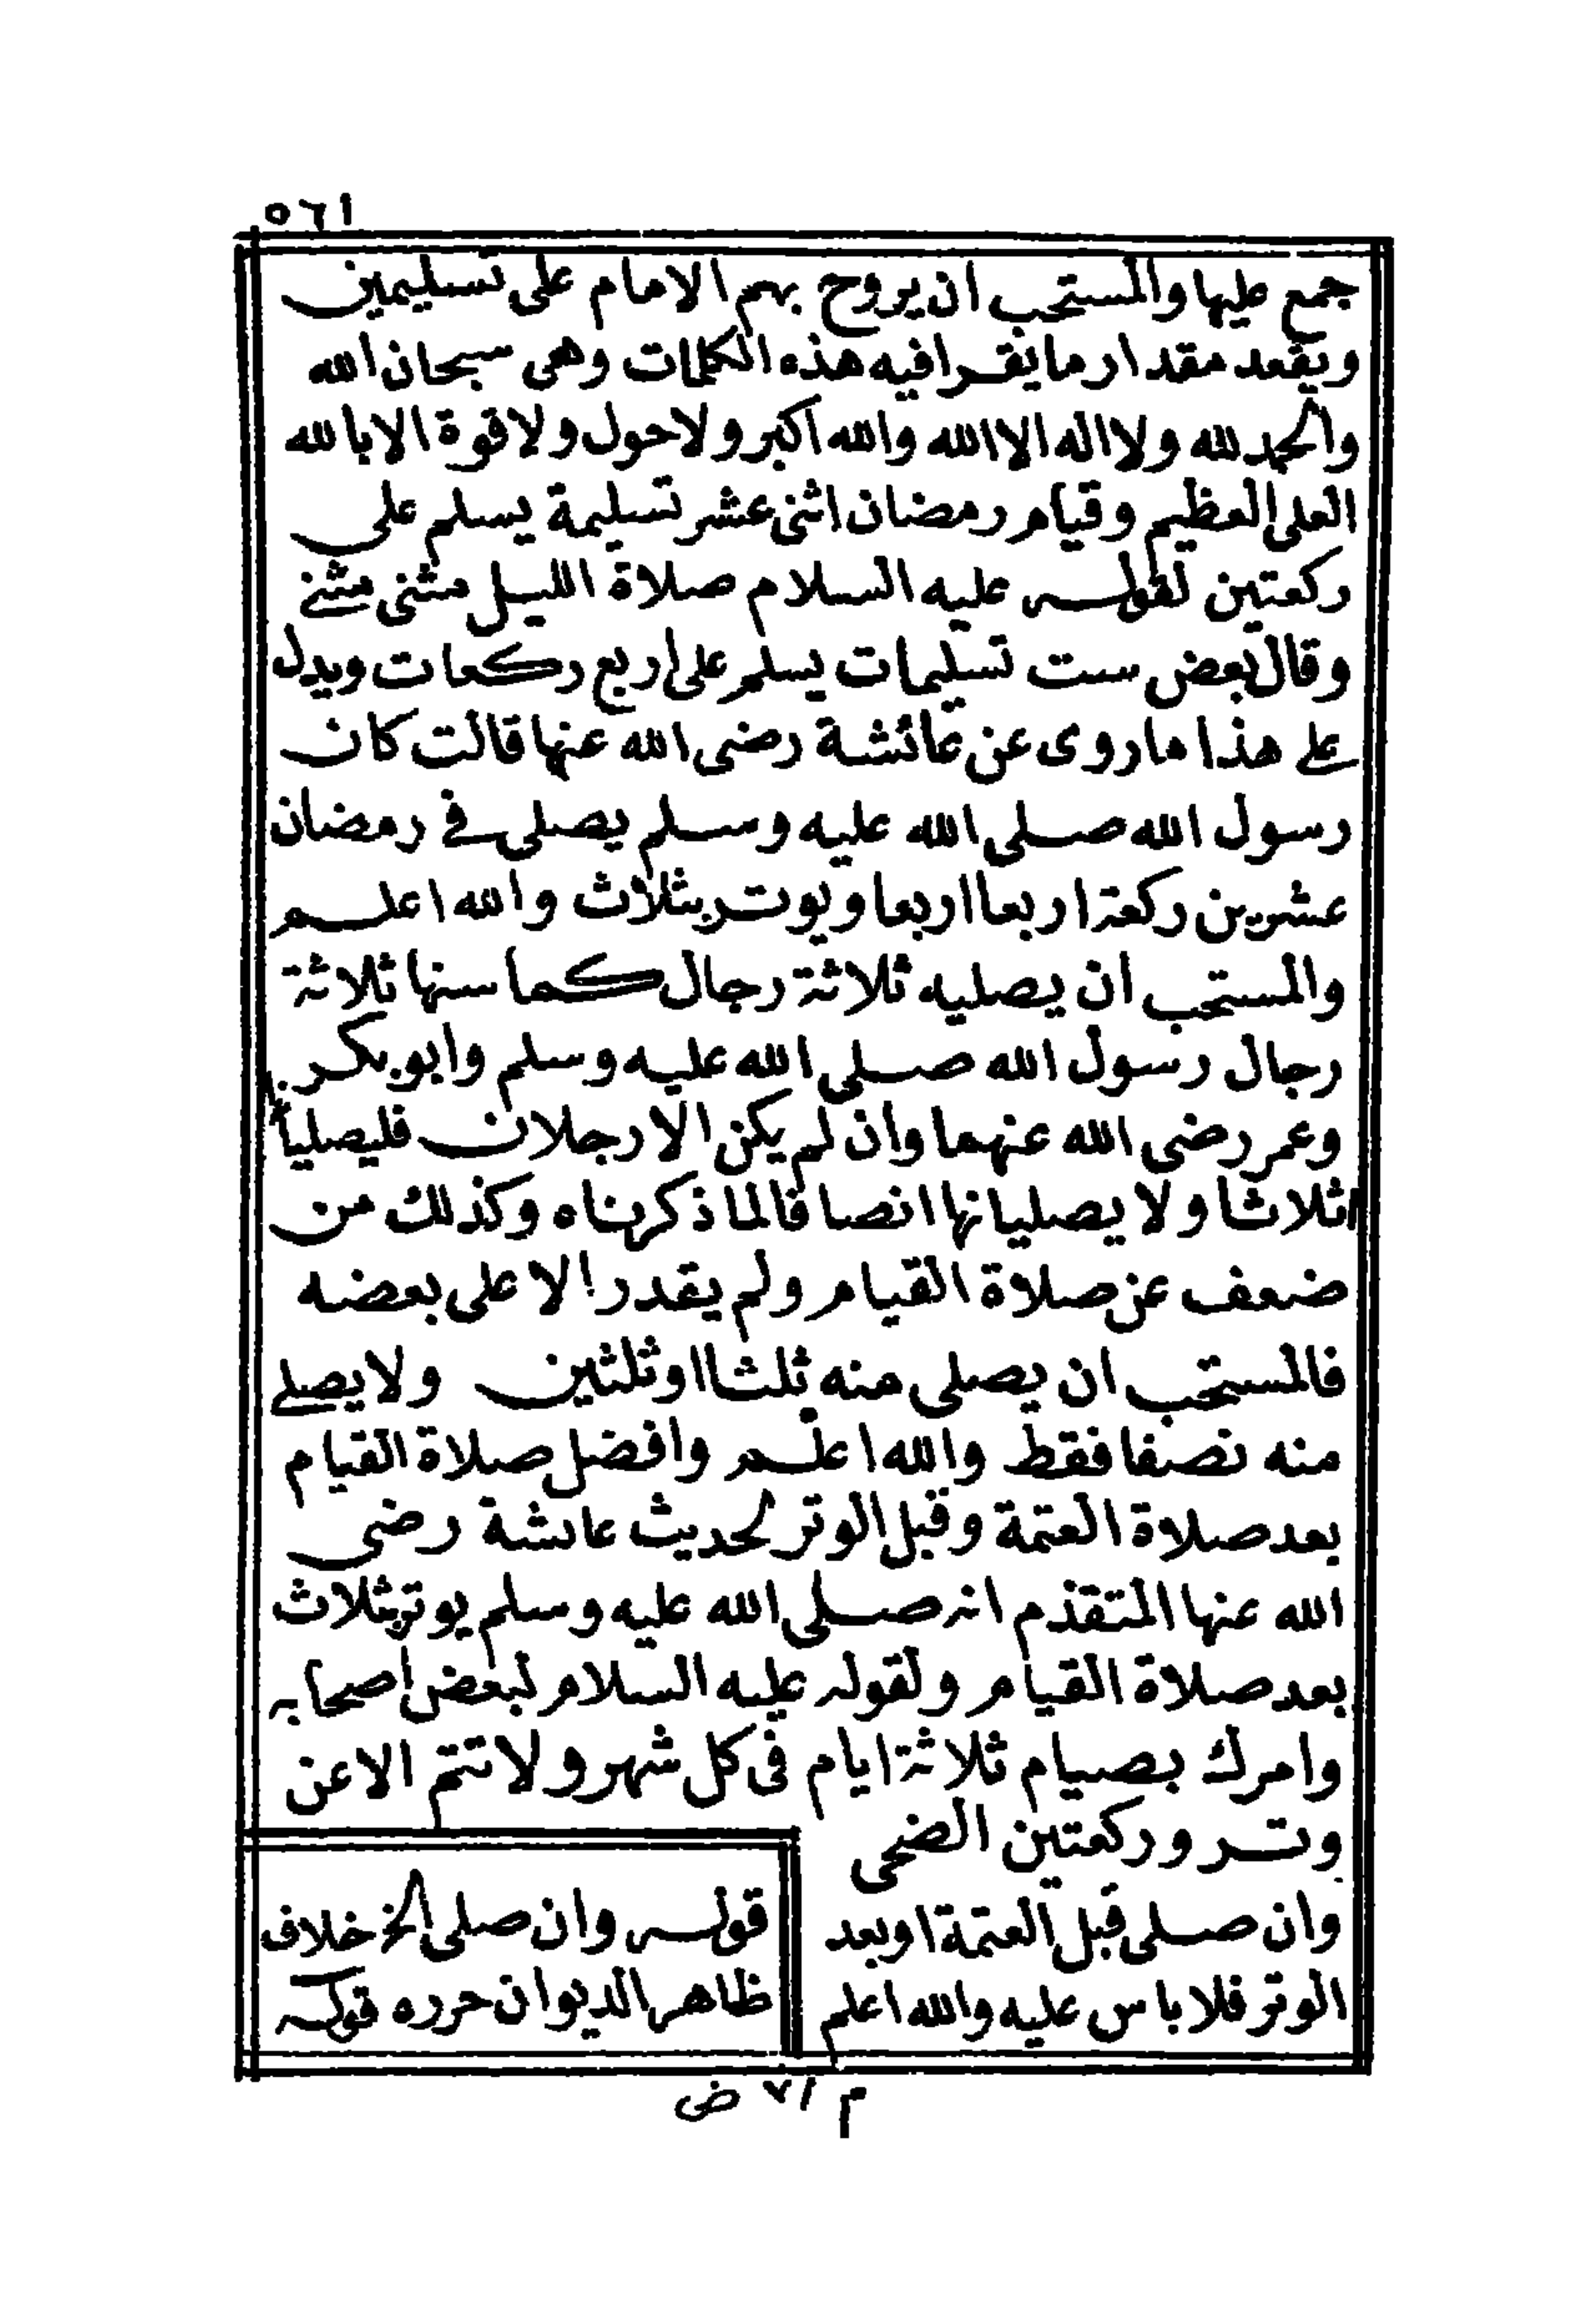 ٥٦١
جمع عليها والمستحب ان يروح بهم الامام على تسليمين
ويقعد مقدار ما يقرا فيه هذه الكلمات وهى سبحان الله
والحمد لله ولا اله الا الله والله اكبر ولا حول ولا قوة الا بالله
العلى العظيم وقيام رمضان اثنى عشر تسليمة يسلم على
ركعتين لقوله عليه السلام صلاة الليل مثنى مثنى
وقال بعض ست تسليمات يسلم على اربع ركعات ويدل
على هذا ما روى عن عائشة رضى الله عنها قالت كان
رسول الله صلى الله عليه وسلم يصلى فى رمضان
عشرين ركعة اربعا اربعا ويوتر بثلاث والله اعلم
والمستحب ان يصليه ثلاثة رجال كما سنها ثلاثة
رجال رسول الله صلى الله عليه وسلم وابو بكر
وعمر رضى الله عنهما وان لم يكن الا رجلان فليصليا
اثلاثا ولا يصليانها انصافا لما ذكرناه وكذلك من
ضعف عن صلاة القيام ولم يقدر الا على بعضه
فالمستحب ان يصلى منه ثلثا او ثلثين ولا يصلى
منه نصفا فقط والله اعلم وافضل صلاة القيام
بعد صلاة العتمة وقبل الوتر لحديث عائشة رضى
الله عنها المتقذم انه صلى الله عليه وسلم يوتر بثلاث
بعد صلاة القيام ولقوله عليه السلام لبعض اصحابه
وامرك بصيام ثلاثة ايام فى كل شهر ولا تنم الا عن
وتر وركعتين الضحى
وان صلى قبل العتمة او بعد
الوتر فلا باس عليه والله اعلم
قوله وان صلى الخ خلاف
ظاهر الديوان حرره قوله
م ٧١ ض